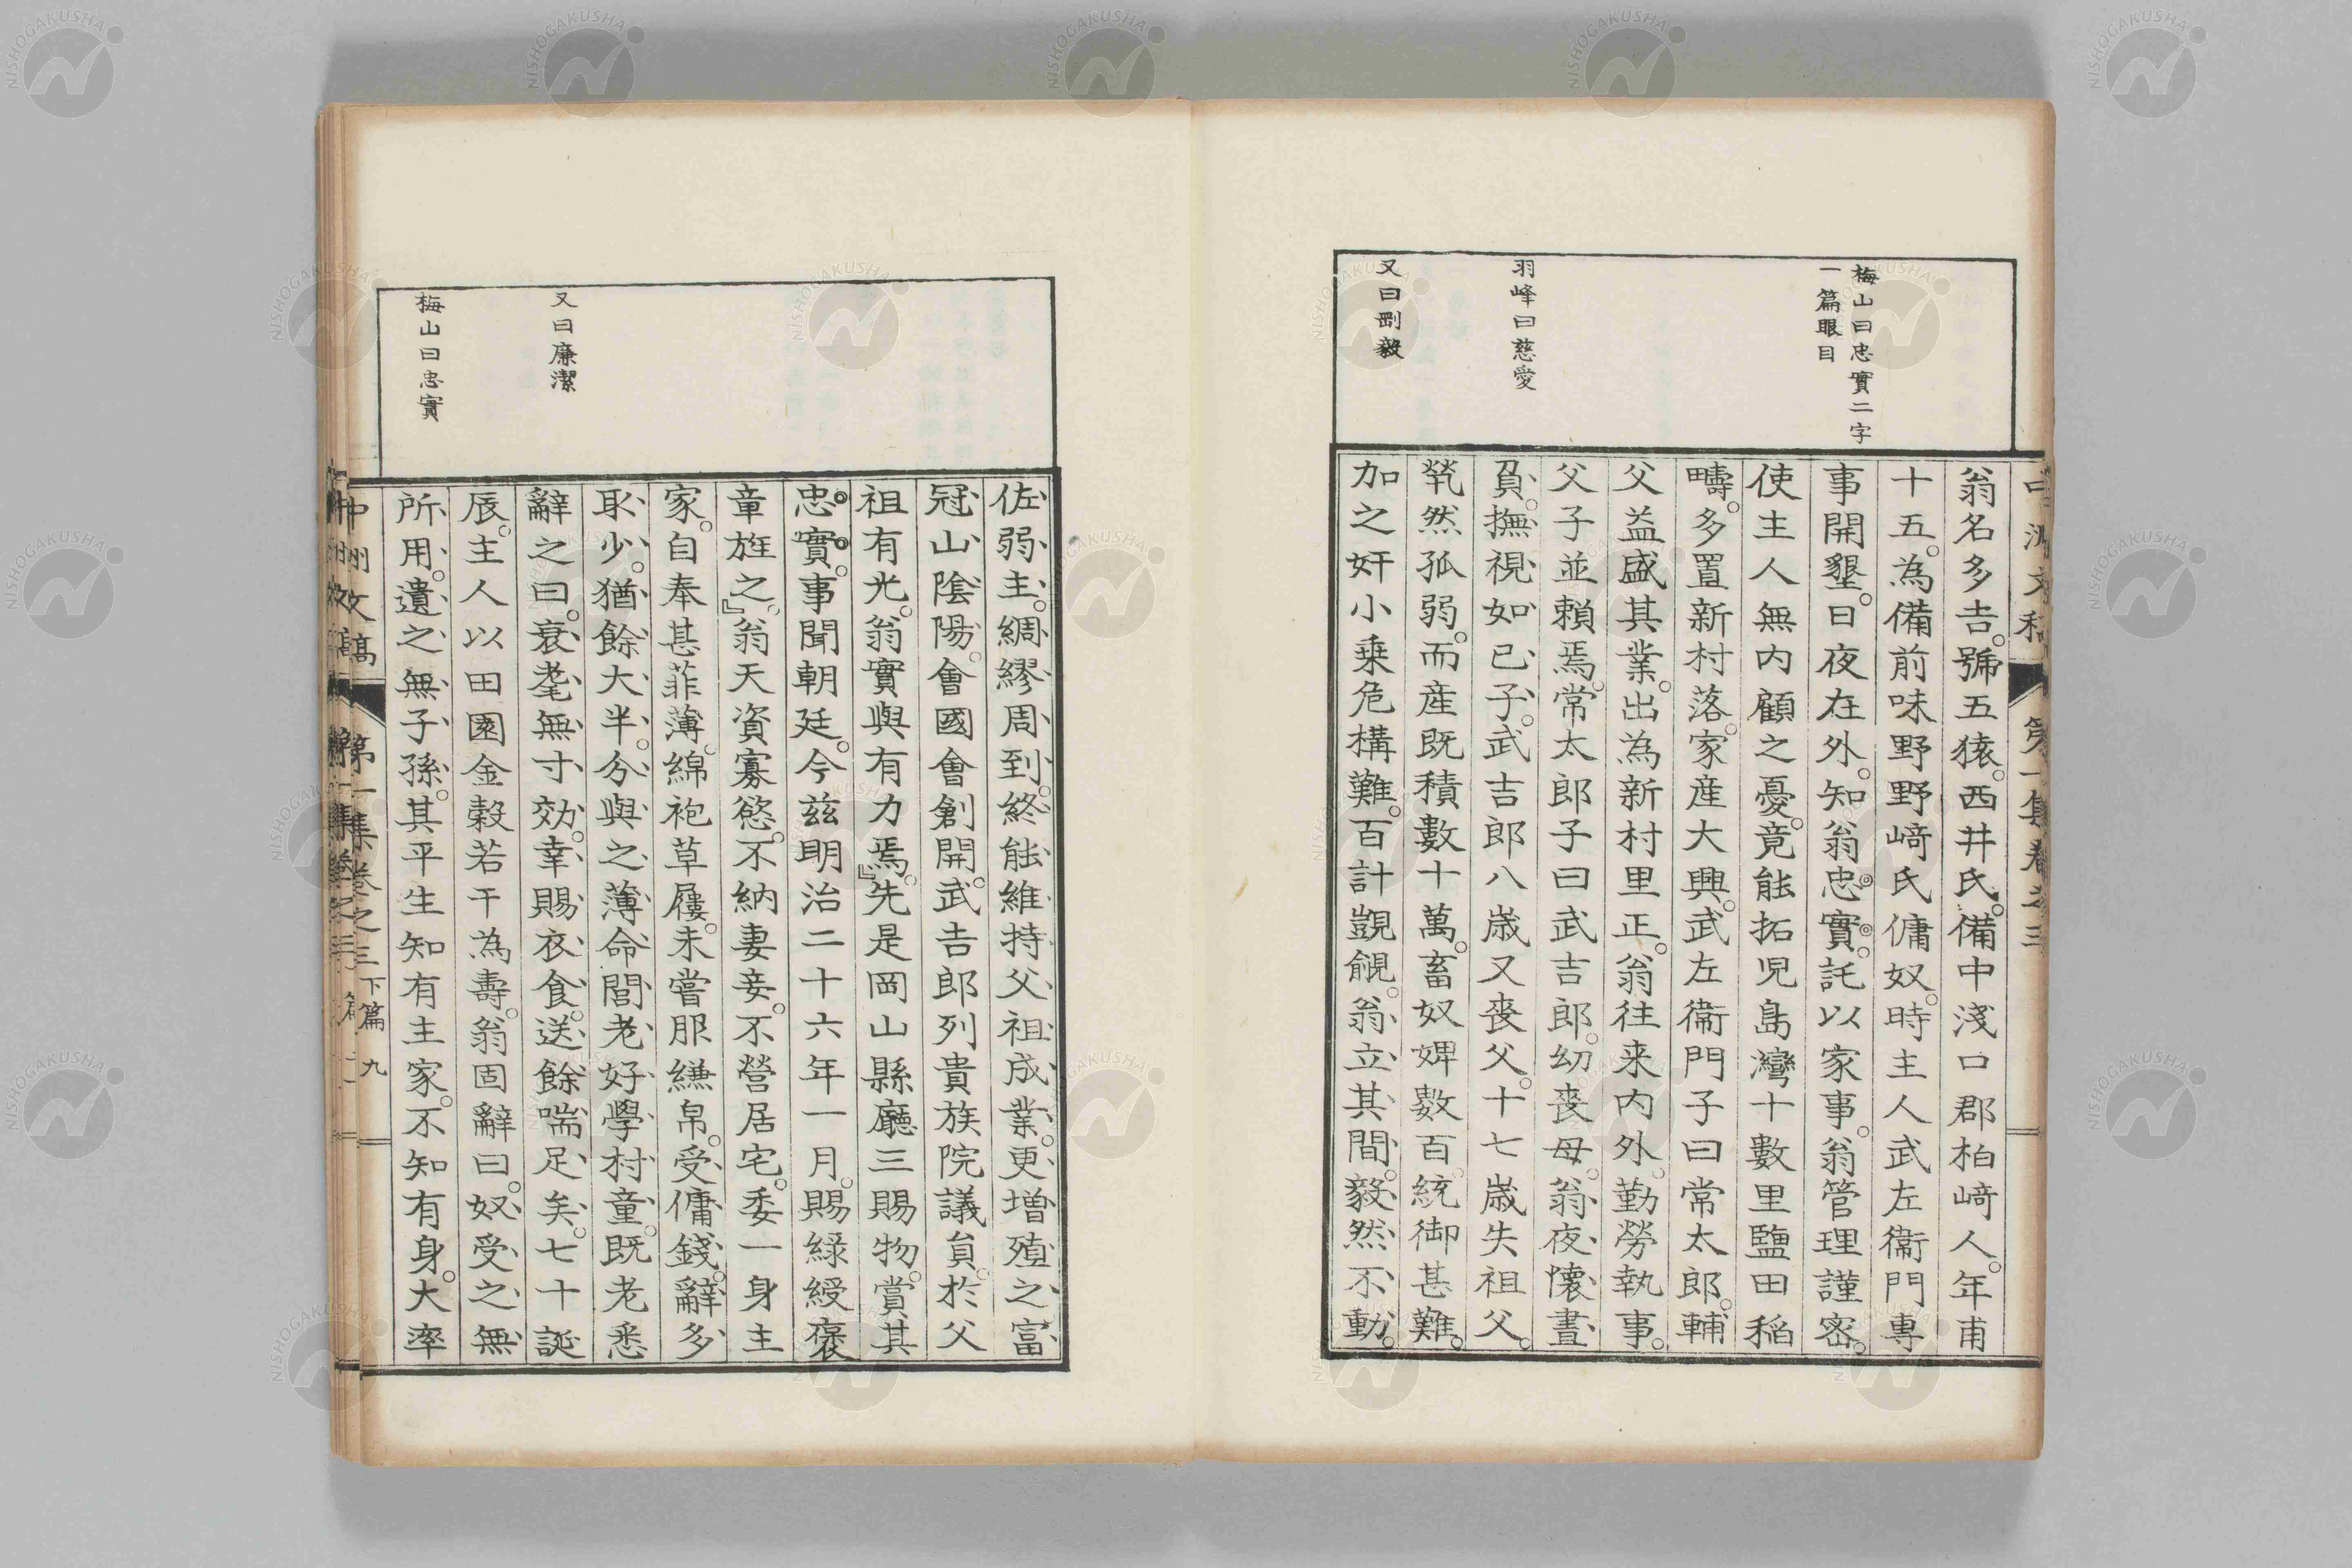 梅山曰忠實二字
一篇眼目
羽峰曰慈愛
又曰剛毅
翁名多吉。號五猿。西井氏。備中淺口郡柏﨑人。年甫
十五。為備前味野野﨑氏傭奴。時主人武左衞門專
事開墾。日夜在外。知翁忠實。託以家事。翁管理謹密。
使主人無內顧之憂。竟能拓児島灣十數里鹽田稲
疇。多置新村落。家産大興。武左衞門子曰常太郎。輔
父益盛其業。出為新村里正。翁往来内外。勤勞執事。
父子並賴焉。常太郎子曰武吉郎。幼喪母。翁夜懷晝
負。撫視如己子。武吉郎八歳又喪父。十七歳失祖父。
煢然孤弱。而産既積數十萬。畜奴婢數百。統御甚難。
加之奸小乗危構難。百計覬覦。翁立其間。毅然不動。
又曰廉潔
梅山曰忠實
佐弱主。綢繆周到。終能維持父祖成業。更増殖之。富
冠山陰陽。會國會創開。武吉郎列貴族院議員。於父
祖有光。翁實與有力焉。』先是岡山縣廳三賜物。賞其
忠實。事聞朝廷。今茲明治二十六年一月。賜緑綬褒
章旌之。』翁天資寡慾。不納妻妾。不營居宅。委一身主
家。自奉甚菲薄。綿袍草屨。未嘗服縑帛。受傭錢。辭多
取少。猶餘大半。分與之薄命閭老好學村童。既老悉
辭之曰。衰耄無寸効。幸賜衣食。送餘喘足矣。七十誕
辰。主人以田園金穀若干為壽。翁固辭曰。奴受之無
所用。遺之無子孫。其平生知有主家。不知有身。大率
中洲文稿 第一集卷之三 下篇 九